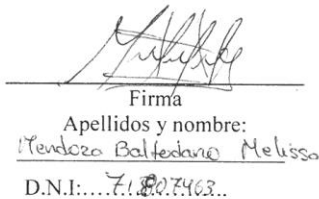 Firma
Apellidos y nombre:
Mendoza Balfedano Melissa
D.N.I:....71807463...